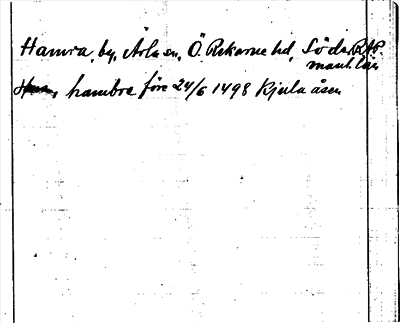 Hamra, by, Ärla sn, Ö. Rekarne hd, Söder-
manl. län
hambre före 24/6 1498 Kjula åsen